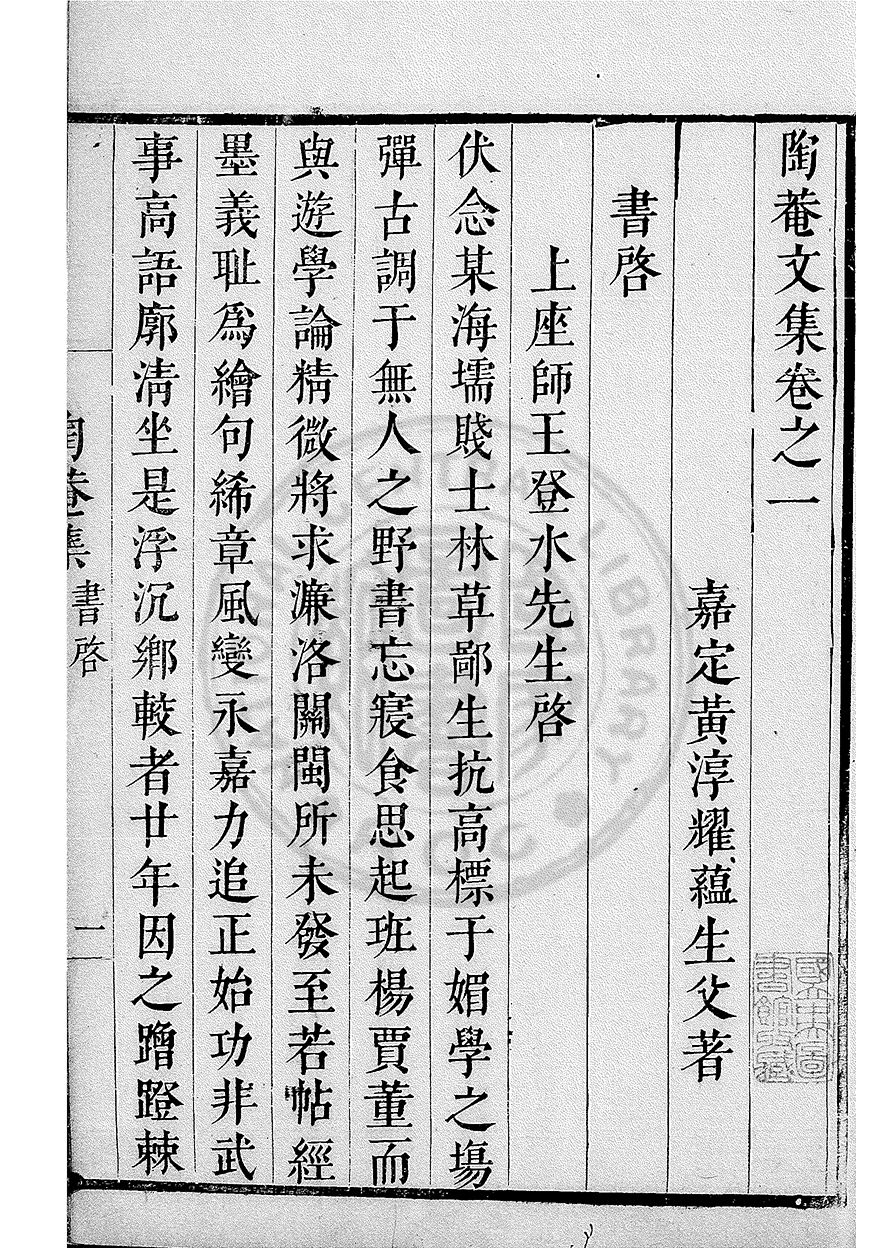 陶菴文集卷之一
嘉定黃淳耀蘊生父著
書啓
上座師王登水先生啓
伏念某海壖賤士林草鄙生抗高標于媚學之塲
彈古調于無人之野書忘寢食思起班楊賈董而
與遊學論精微將求濂洛關閩所未發至若帖經
墨義耻爲繪句絺章風變永嘉力追正始功非武
事高語廓淸坐是浮沉鄉較者廿年因之蹭蹬棘
陶菴集
書啓
一
國立中央圖書館收藏
CENTRAL LIBRARY